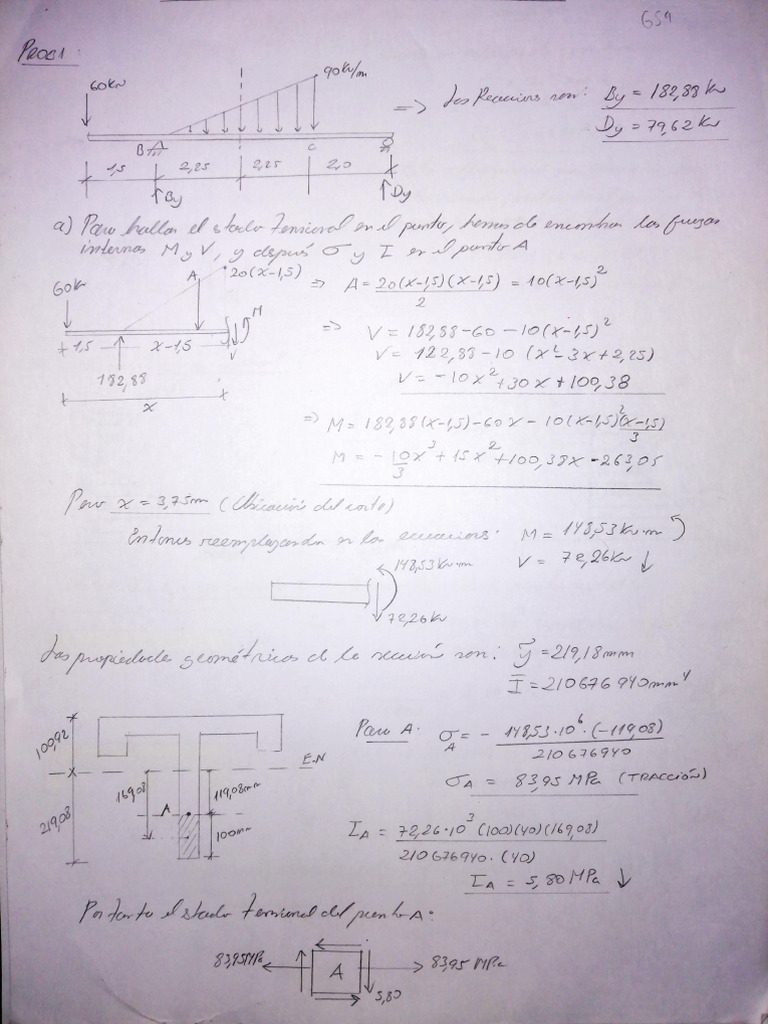 659
PROB1:
60KN
90KN/m
=> Las Reacciones son: By = 182,88 KN
Dy = 79,62 KN
B
C
1,5 2,25 2,25 2,0
By
Dy
a) Para hallar el stado tensional en el punto, hemos de encontrar las fuerzas
internas M y V, y después σ y I en el punto A
60KN
A
20(x-1,5)
M
V
1,5 x-1,5
182,88
x
=> A = 20(x-1,5)(x-1,5)/2 = 10(x-1,5)²
=> V = 182,88-60-10(x-1,5)²
V = 122,88-10(x²-3x+2,25)
V = -10x²+30x+100,38
=> M = 182,88(x-1,5)-60x-10(x-1,5)²(x-1,5)/3
M = -10/3x³+15x²+100,38x-263,05
Pero x = 3,75m (Ubicación del corte)
Entonces reemplazando en las ecuaciones: M = 148,53 KN·m
V = 72,26KN ↓
148,53KN·m
72,26KN
Las propiedades geométricas de la sección son: ȳ = 219,18mm
Ī = 210676940mm⁴
100,92
219,08
E.N
169,08
119,08mm
A
100mm
Para A: σA = - 148,53·10⁶·(-119,08)/210676940
σA = 83,95 MPa (TRACCIÓN)
IA = 72,26·10³(100)(40)(169,08)/210676940·(40)
IA = 5,80MPa ↓
Por tanto el stado tensional del punto A:
83,95MPa
A
83,95 MPa
5,80